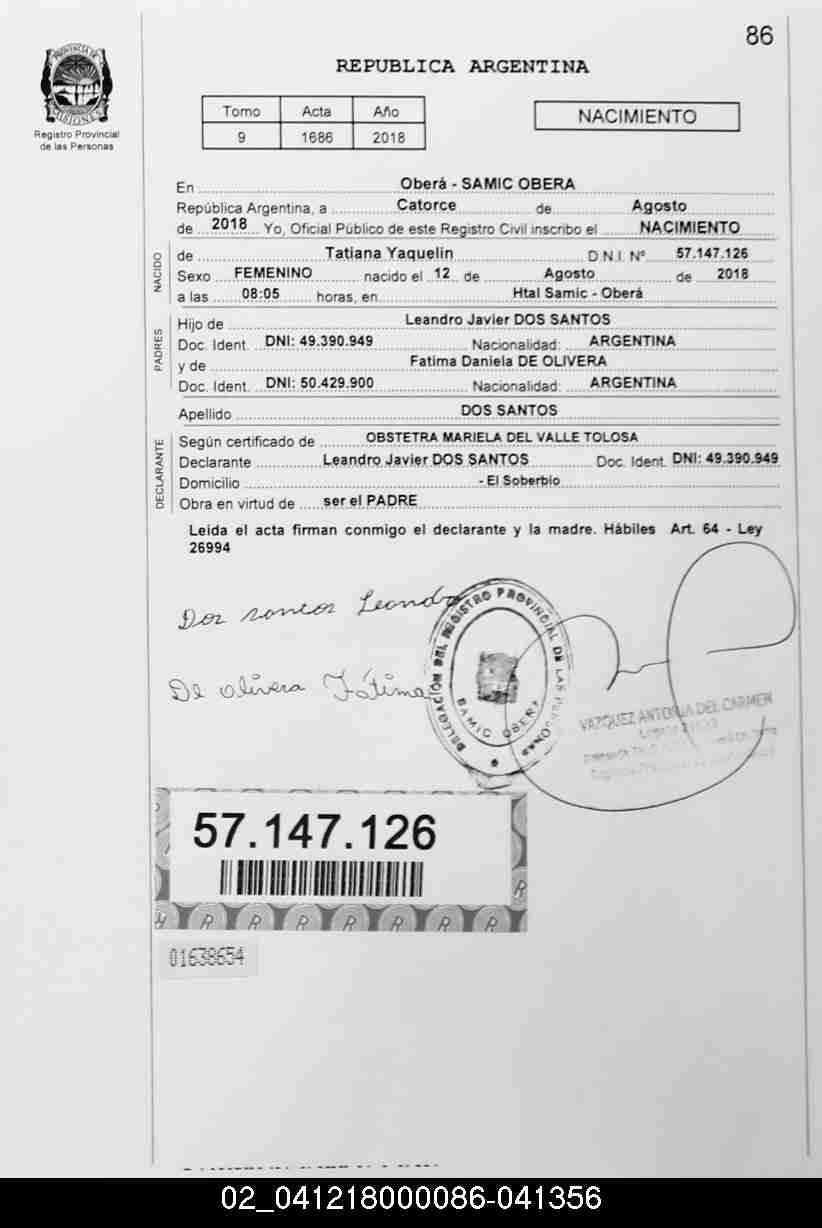 86
REPUBLICA ARGENTINA
PROVINCIA DE MISIONES
Registro Provincial
de las Personas
Tomo Acta Año
9 1686 2018
NACIMIENTO
En Oberá - SAMIC OBERA
República Argentina, a Catorce de Agosto
de 2018 Yo, Oficial Público de este Registro Civil inscribo el NACIMIENTO
NACIDO
de Tatiana Yaquelin D.N.I. Nº 57.147.126
Sexo FEMENINO nacido el 12 de Agosto de 2018
a las 08:05 horas, en Htal Samic - Oberá
PADRES
Hijo de Leandro Javier DOS SANTOS
Doc. Ident. DNI: 49.390.949 Nacionalidad: ARGENTINA
y de Fatima Daniela DE OLIVERA
Doc. Ident. DNI: 50.429.900 Nacionalidad: ARGENTINA
Apellido DOS SANTOS
DECLARANTE
Según certificado de OBSTETRA MARIELA DEL VALLE TOLOSA
Declarante Leandro Javier DOS SANTOS Doc. Ident. DNI: 49.390.949
Domicilio - El Soberbio
Obra en virtud de ser el PADRE
Leida el acta firman conmigo el declarante y la madre. Hábiles Art. 64 - Ley
26994
Dos santos Leandro
De olivera Fátima
DELEGACIÓN DEL REGISTRO PROVINCIAL DE LAS PERSONAS
SAMIC OBERA
VAZQUEZ ANTONIA DEL CARMEN
57.147.126
R R R R R R R
01638654
02_041218000086-041356